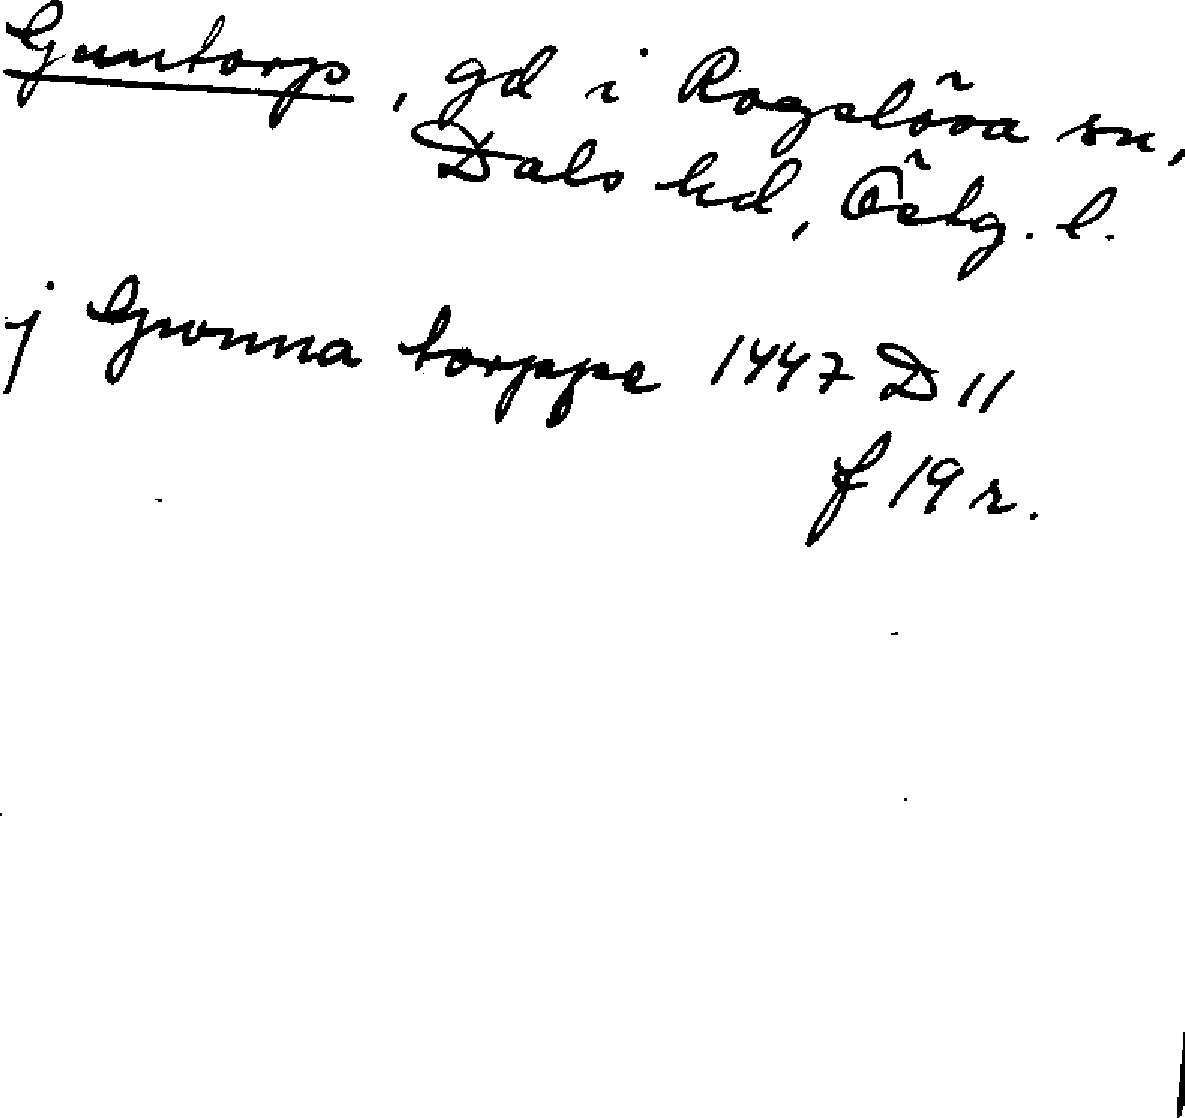 Guntorp, gd i Rogslösa sn,
Dals hd, Östg. l.
j Gwnna torppe 1447 D 11
f 19 r.